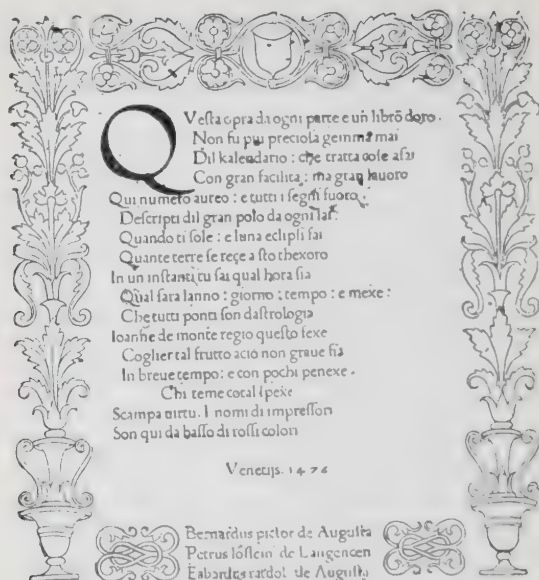 QVesta opra da ogni parte e un libro doro.
Non fu piu preciosa gemma mai
Dil kalendario: che tratta cose asai
Con gran facilita: ma gran lauoro
Qui numero aureo: e tutti i segni fuoro.
Descripti dil gran polo da ogni lai:
Quando ti sole: e luna eclipsi fai
Quante terre se reçe a sto thexoro
In un instanti tu sai qual hora sia
Qual sara lanno: giorno: tempo: e mexe:
Che tutti ponti son dastrologia
Ioanne de monte regio questo fexe
Coglier tal frutto acio non graue sia
In breue tempo: e con pochi penexe.
Chi teme cotal spexe
Scampa uirtu. I nomi di impressori
Son qui da basso di rossi colori
Venetijs. 1476
Bernardus pictor de Augusta
Petrus löslein de Langencen
Erhardus ratdolt de Augusta